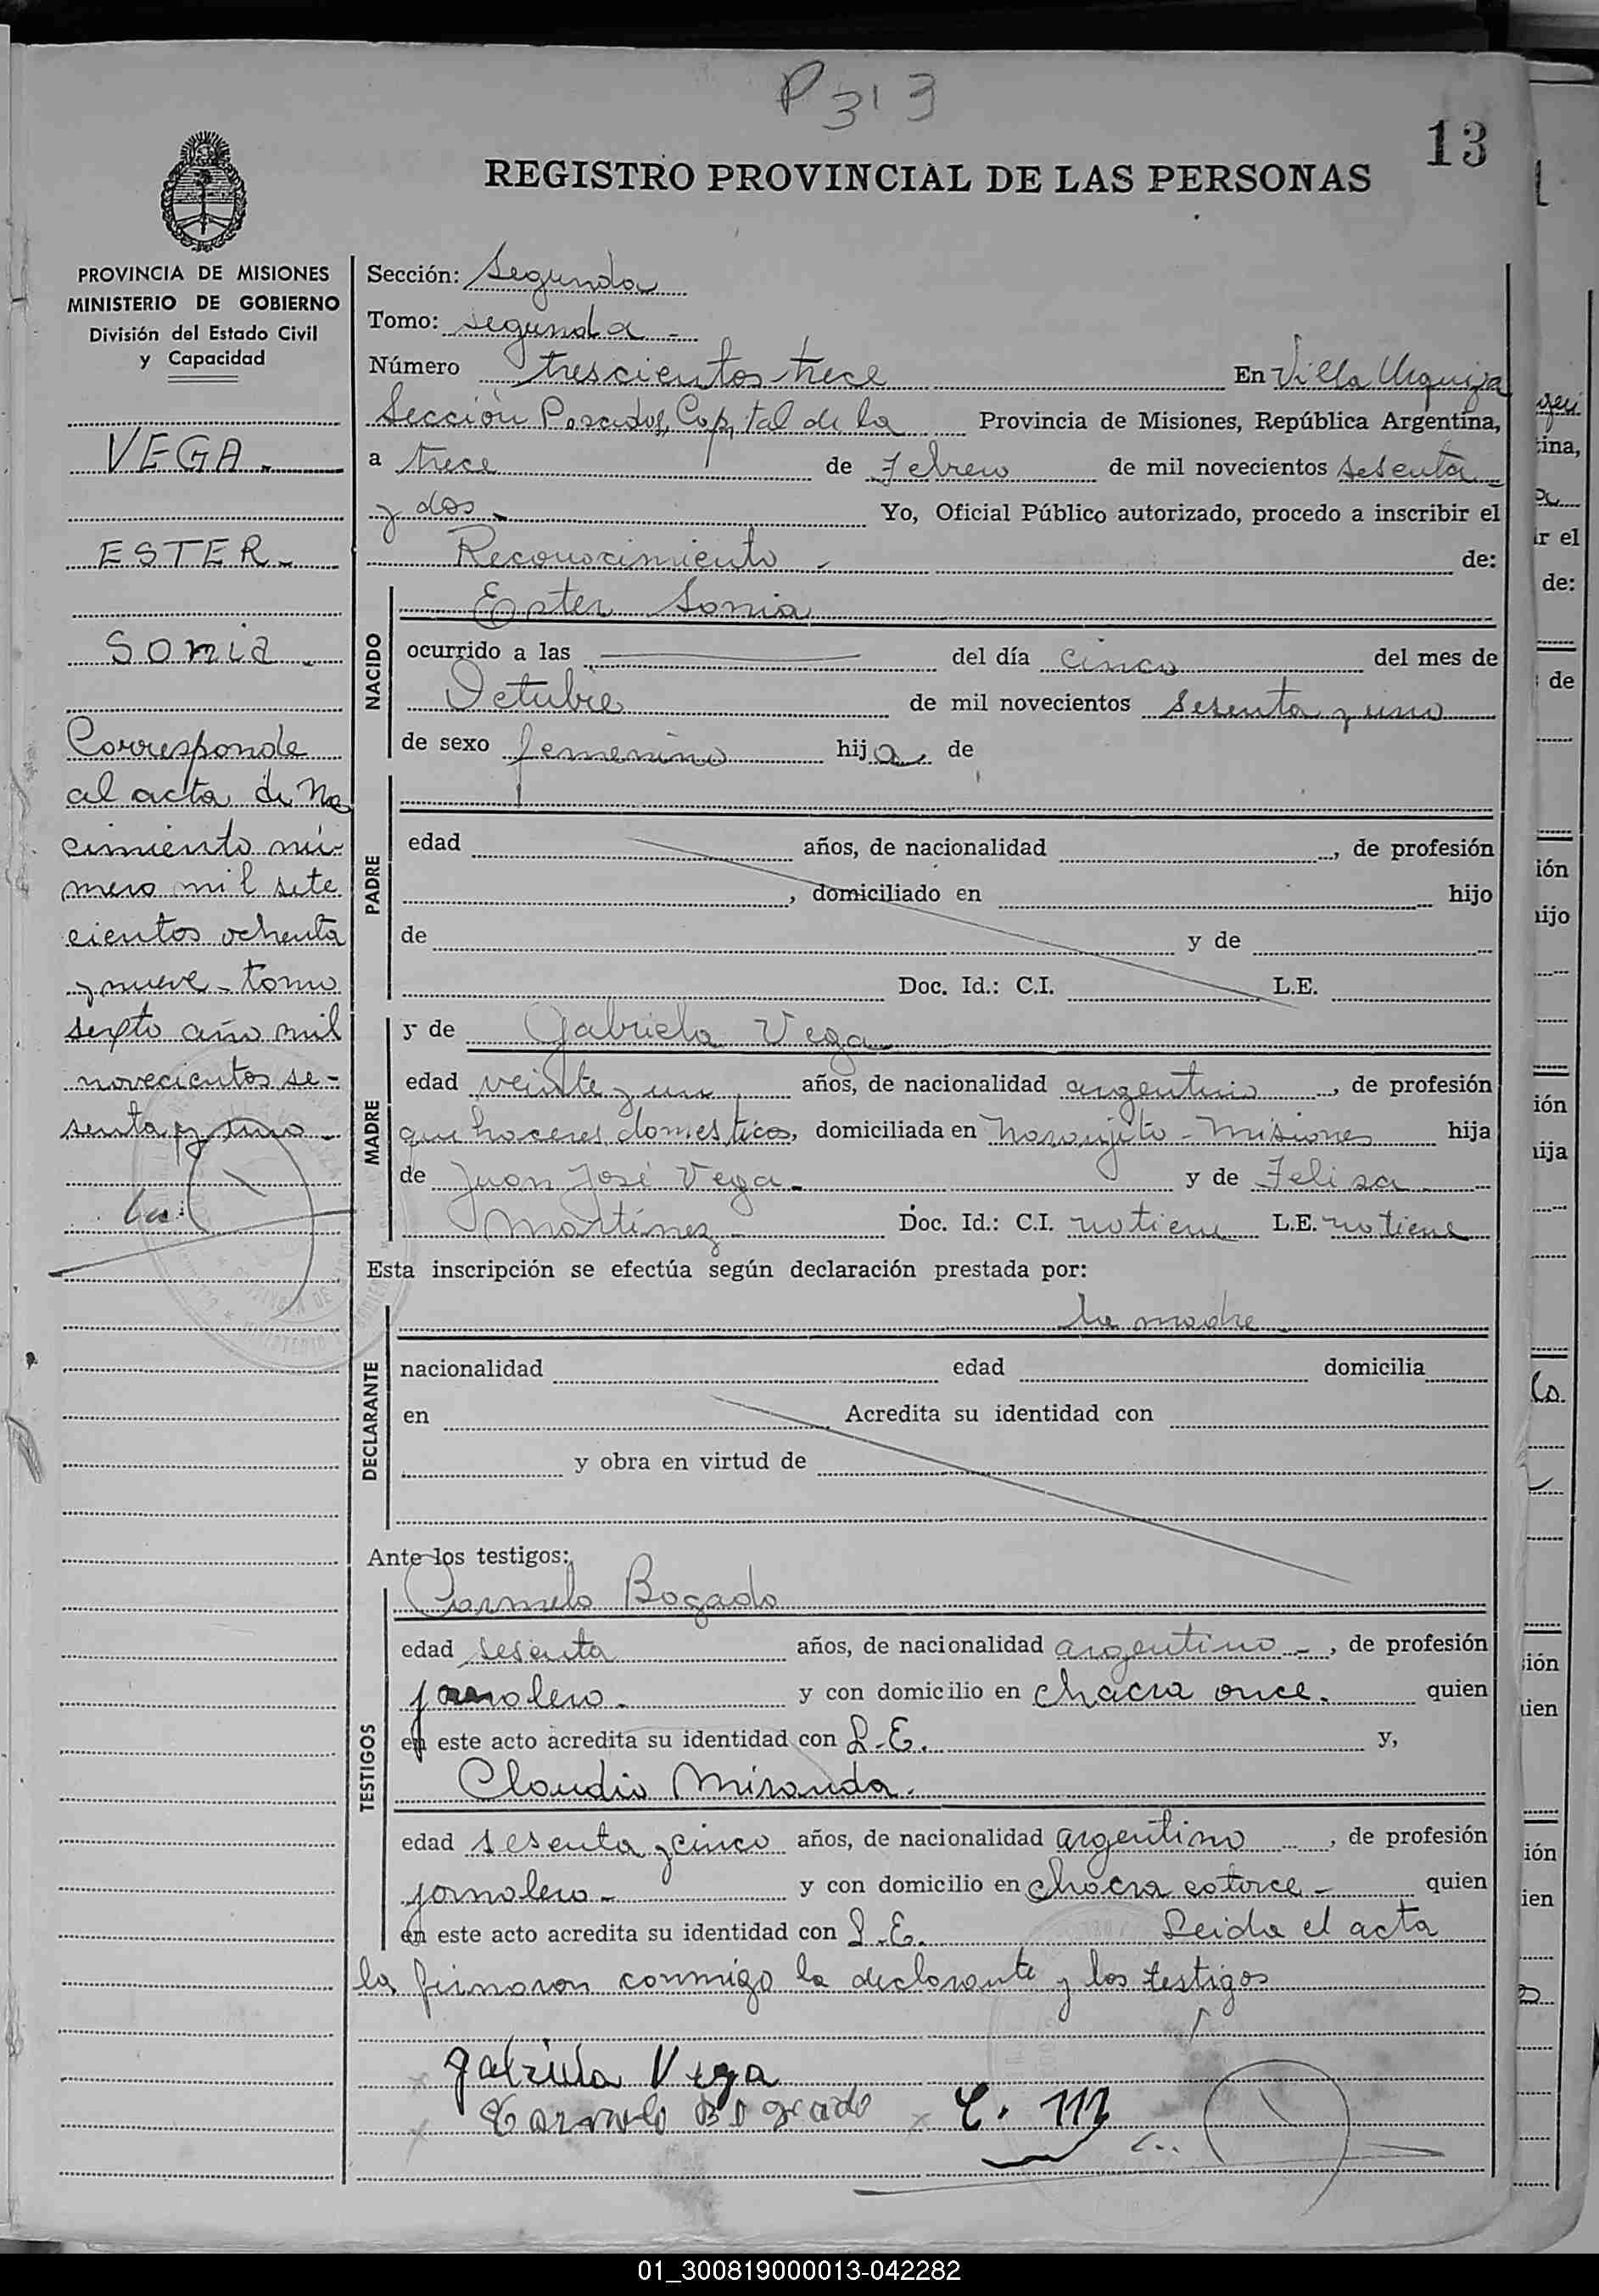 P 313
13
REGISTRO PROVINCIAL DE LAS PERSONAS
PROVINCIA DE MISIONES
MINISTERIO DE GOBIERNO
División del Estado Civil
y Capacidad
VEGA.
ESTER.
Sonia.
Corresponde
al acta de Na
cimiento nú-
mero mil sete
cientos ochenta
y nueve - tomo
sexto año mil
novecientos se-
senta y uno -
Sección: Segunda
Tomo: segunda -
Número trescientos trece En Villa Urquiza
Sección Posadas, Capital de la Provincia de Misiones, República Argentina,
a trece de Febrero de mil novecientos sesenta
y dos - Yo, Oficial Público autorizado, procedo a inscribir el
Reconocimiento - de:
NACIDO
Ester Sonia
ocurrido a las del día cinco del mes de
Octubre de mil novecientos sesenta y uno
de sexo femenino hija, de
PADRE
edad años, de nacionalidad , de profesión
, domiciliado en hijo
de y de
Doc. Id.: C.I. L.E.
MADRE
y de Gabriela Vega
edad veinte y un años, de nacionalidad argentino , de profesión
que haceres domesticos, domiciliada en Naranjito - Misiones hija
de Juan José Vega - y de Felisa
Martínez - Doc. Id.: C.I. no tiene L.E. no tiene
Esta inscripción se efectúa según declaración prestada por:
DECLARANTE
la madre
nacionalidad edad domicilia
en Acredita su identidad con
y obra en virtud de
Ante los testigos:
TESTIGOS
Carmelo Bogado
edad sesenta años, de nacionalidad argentino - , de profesión
jornalero - y con domicilio en chacra once. quien
en este acto acredita su identidad con L.E. y,
Claudio Miranda.
edad sesenta y cinco años, de nacionalidad argentino , de profesión
jornalero - y con domicilio en chacra catorce - quien
en este acto acredita su identidad con L.E. Leida el acta
la firmaron conmigo la declarante y los testigos
Gabriela Vega
Carmelo Bogado
01_300819000013-042282